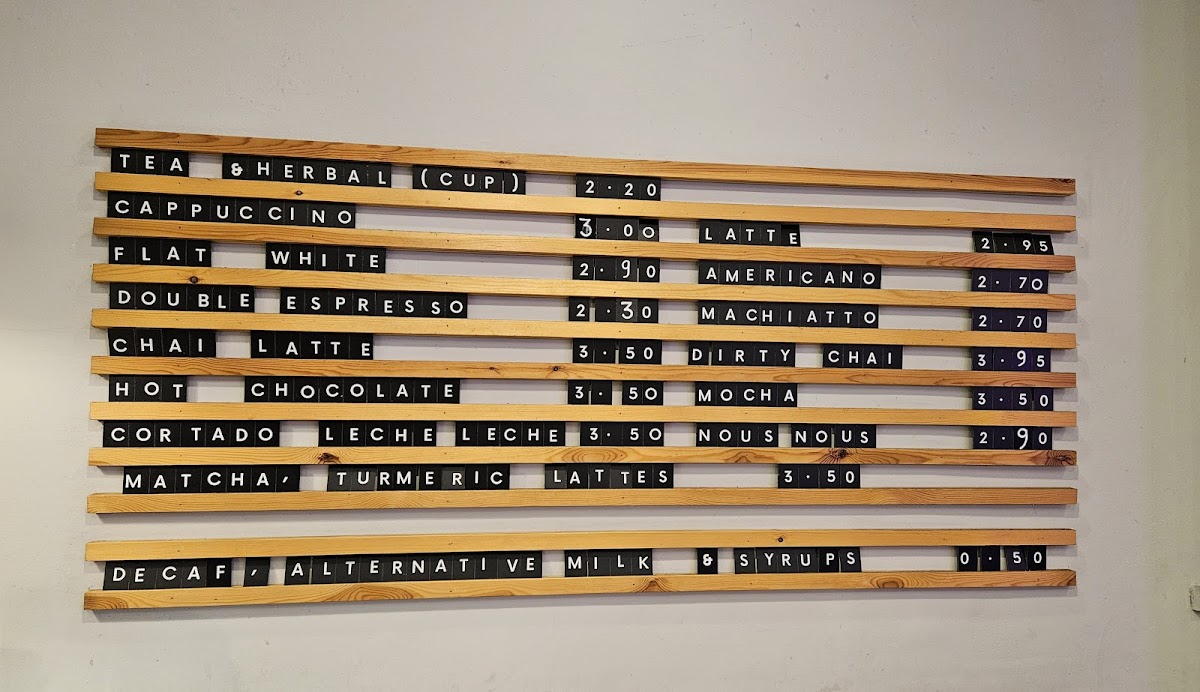 TEA & HERBAL (CUP) 2.20
CAPPUCCINO 3.00 LATTE 2.95
FLAT WHITE 2.90 AMERICANO 2.70
DOUBLE ESPRESSO 2.30 MACHIATTO 2.70
CHAI LATTE 3.50 DIRTY CHAI 3.95
HOT CHOCOLATE 3.50 MOCHA 3.50
CORTADO LECHE LECHE 3.50 NOUS NOUS 2.90
MATCHA, TURMERIC LATTES 3.50
DECAF, ALTERNATIVE MILK & SYRUPS 0.50